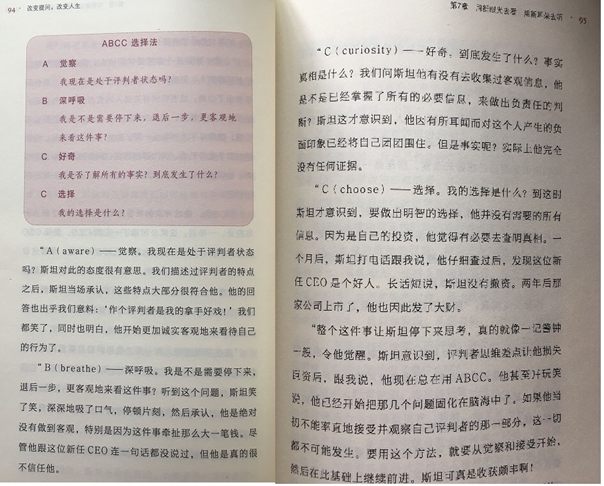 94 改变提问,改变人生
ABCC 选择法
A 觉察
我现在是处于评判者状态吗?
B 深呼吸
我是不是需要停下来,退后一步,更客观地
来看这件事?
C 好奇
我是否了解所有的事实?到底发生了什么?
C 选择
我的选择是什么?
“A(aware)——觉察。我现在是处于评判者状态
吗?斯坦对此的态度很有意思。我们描述过评判者的特点
之后,斯坦当场承认,这些特点大部分很符合他。他的回
答也出乎我们意料:‘作个评判者是我的拿手好戏!’我们
都笑了,同时也明白,他开始更加诚实客观地来看待自己
的行为了。
“B(breathe)——深呼吸。我是不是需要停下来,
退后一步,更客观地来看这件事?听到这个问题,斯坦笑
了笑,深深地吸了口气,停顿片刻,然后承认,他是绝对
没有做到客观,特别是因为这件事牵扯那么大一笔钱。尽
管他跟这位新任CEO连一句话都没说过,但他是真的很
不信任他。
第7章 用新眼光去看 用新耳朵去听 95
“C(curiosity)——好奇。到底发生了什么?事实
真相是什么?我们问斯坦他有没有去收集过客观信息,他
是不是已经掌握了所有的必要信息,来做出负责任的判
断?斯坦这才意识到,他因有所耳闻而对这个人产生的负
面印象已经将自己团团围住。但是事实呢?实际上他完全
没有任何证据。
“C(choose)——选择。我的选择是什么?到这时
斯坦才意识到,要做出明智的选择,他并没有需要的所有
信息。因为是自己的投资,他觉得有必要去查明真相。一
个月后,斯坦打电话跟我说,他仔细查过后,发现这位新
任CEO是个好人。长话短说,斯坦没有撤资。两年后那
家公司上市了,他也因此发了大财。
“整个这件事让斯坦停下来思考,真的就像一记警钟
一般,令他觉醒。斯坦意识到,评判者思维差点让他损失
巨资后,跟我说,他现在总在用ABCC。他甚至开玩笑
说,他已经开始把那几个问题固化在脑海中了。如果他当
初不能率直地接受并观察自己评判者的那一部分,这一切
都不可能发生。要用这个方法,就要从觉察和接受开始,
然后在此基础上继续前进。斯坦可真是收获颇丰啊!